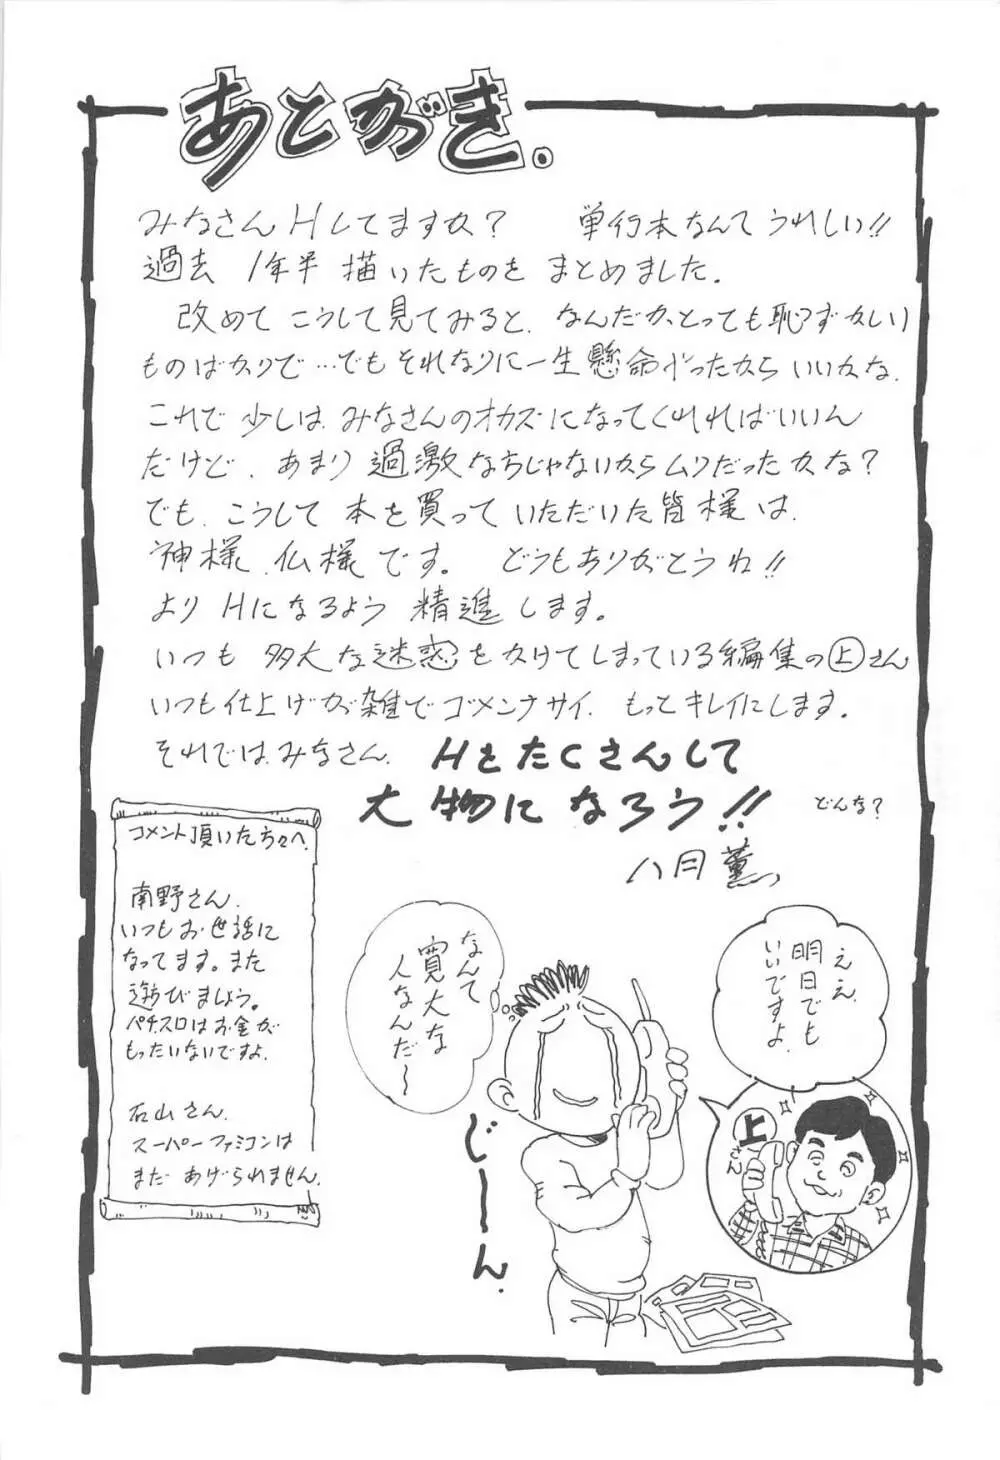 あとがき.
みなさんHしてますか? 単行本なんてうれしい!!
過去 1年半 描いたものを まとめました.
改めて こうして見てみると、なんだか、とっても恥ずかしい
ものばかりで…でもそれなりに一生懸命だったからいいかな.
これで 少しは、みなさんのオカズになってくれればいいん
だけど、あまり過激な方じゃないからムリだったかな?
でも、こうして 本を買って いただいた皆様は、
神様、仏様です。 どうもありがとうね!!
より Hになるよう 精進します。
いつも 多大な迷惑をかけてしまっている編集の上さん
いつも仕上げが雑でゴメンナサイ. もっとキレイにします。
それでは、みなさん. Hをたくさんして
大物になろう!! どんな?
八月薫
コメント頂いた方々へ.
南野さん.
いつもお世話に
なってます。また
遊びましょう。
パチスロはお金が
もったいないですよ.
石山さん.
スーパーファミコンは
まだ あげられません.
なんて
寛大な
人なんだ〜
じーーん.
ええ
明日でも
いいですよ.
上さん